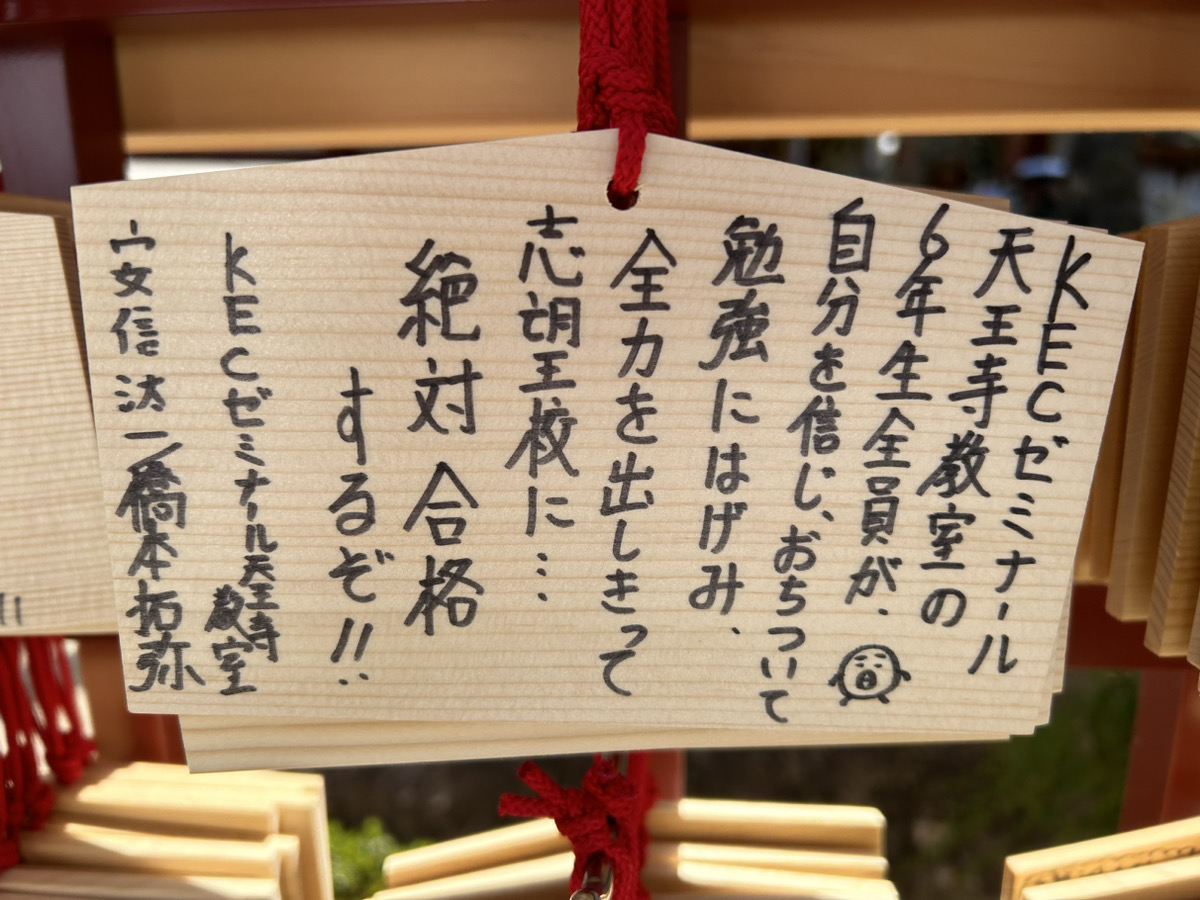 KECゼミナール
天王寺教室の
6年生全員が、
自分を信じ、おちついて
勉強にはげみ、
全力を出しきって
志望校に…
絶対合格
するぞ!!
KECゼミナール天王寺
教室
安信汰一/橋本拓弥